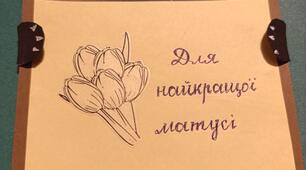 Для
найкращої
матусі